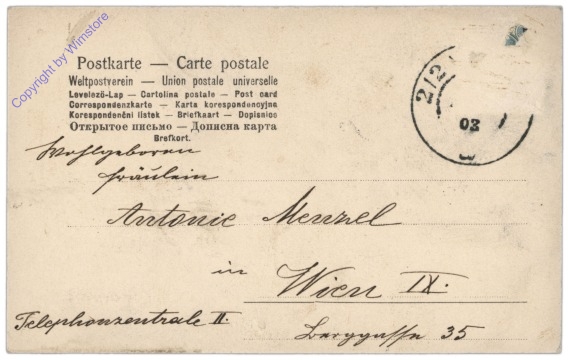 Copyright by Wimstore
Postkarte — Carte postale
Weltpostverein — Union postale universelle
Levelező-Lap — Cartolina postale — Post card
Correspondenzkarte — Karta korespondencyjna
Korespondenční lístek — Briefkaart — Dopisnice
Открытое письмо — Дописна карта
Brefkort.
2/2
03
Wohlgeboren
Fräulein
Antonie Menzel
in
Wien IX.
Telephonzentrale II.
Berggasse 35